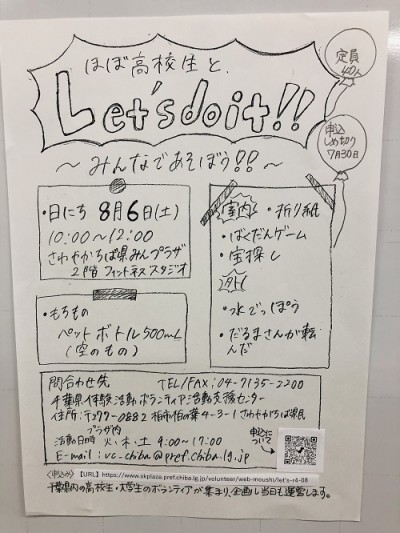 ほぼ高校生と、
Let'sdoit!!
定員
40人
申込
しめ切り
7月30日
～みんなであそぼう!!～
・日にち 8月6日(土)
10:00～12:00
さわやかちば県みんプラザ
2階 フィットネススタジオ
・もちもの
ペットボトル500mL
(空のもの)
室内 ・折り紙
・ばくだんゲーム
・宝探し
外
・水でっぽう
・だるまさんが転
んだ
問合わせ先 TEL/FAX:04-7135-2200
千葉県体験活動ボランティア活動支援センター
住所:〒277-0882 柏市柏の葉4-3-1 さわやかちば県民
プラザ内
活動日時 火・木・土 9:00～17:00
E-mail:vc-chiba@pref.chiba.lg.jp
申込に
ついて
〈申込み〉【URL】https://www.skplaza.pref.chiba.lg.jp/volunteer/web-moushi/let's-r4-08
千葉県内の高校生・大学生のボランティアが集まり、企画し当日も運営します。